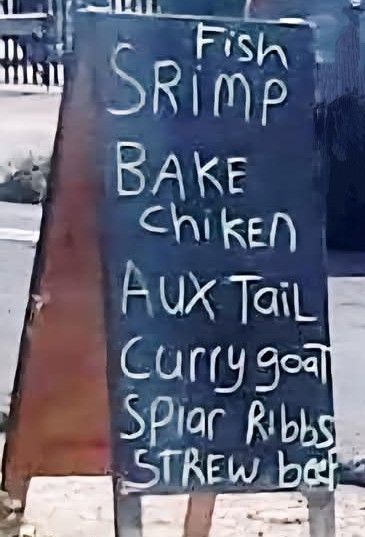 Fish
SRimp
BAKE
chiKEn
AUX TaiL
Curry goat
Spiar Ribbs
STREW beef